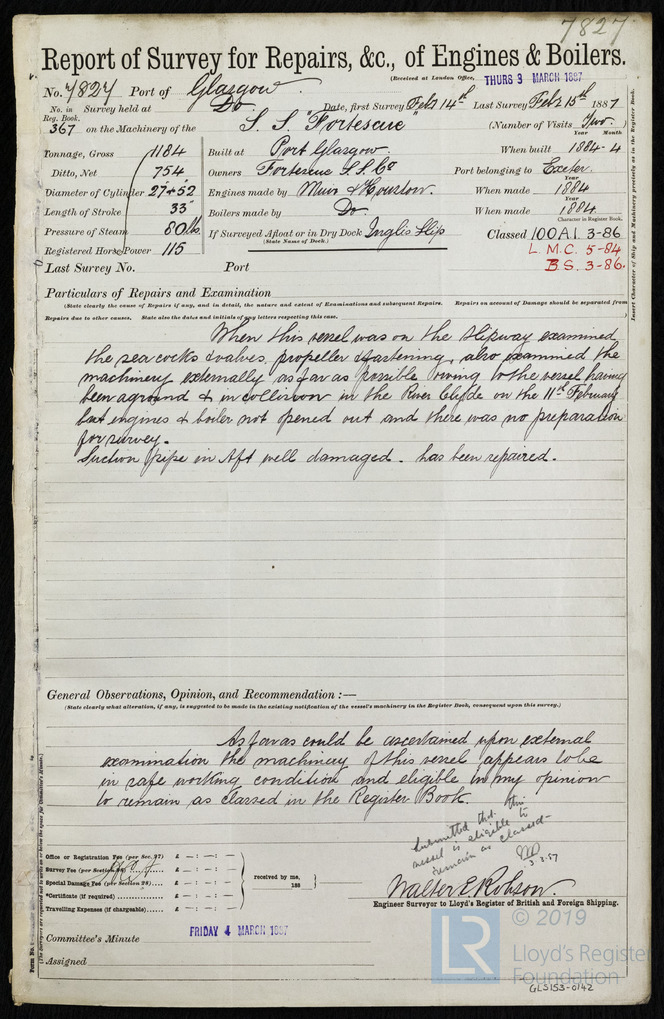 7827
Report of Survey for Repairs, &c., of Engines & Boilers.
(Received at London Office, THURS 3 MARCH 1887
No. 7827 Port of Glasgow
No. in Reg. Book. Survey held at Do Date, first Survey Feb 14th Last Survey Feb 15th 1887
367 on the Machinery of the S. S. "Fortescue" (Number of Visits Two)
Tonnage, Gross 1184 Built at Port Glasgow. When built 1884-4
Year Month
Ditto, Net 754 Owners Fortescue S.S. Co Port belonging to Exeter.
Diameter of Cylinder 27+52 Engines made by Muir & Houston. When made 1884
Year
Length of Stroke 33" Boilers made by Do. When made 1884
Year
Pressure of Steam 80 lbs. If Surveyed Afloat or in Dry Dock Inglis Slip Classed 100A1 3-86
(State Name of Dock.)
Character in Register Book.
Registered Horse Power 115 L.M.C. 5-84
B.S. 3-86.
Last Survey No. Port
Insert Character of Ship and Machinery precisely as in the Register Book.
Particulars of Repairs and Examination
(State clearly the cause of Repairs if any, and in detail, the nature and extent of Examinations and subsequent Repairs. Repairs on account of Damage should be separated from
Repairs due to other causes. State also the dates and initials of any letters respecting this case.)
When this vessel was on the slipway examined
the sea cocks & valves, propeller & fastening, also examined the
machinery externally as far as possible owing to the vessel having
been aground & in collision in the River Clyde on the 11th February
but engines & boiler not opened out and there was no preparation
for survey.
Suction pipe in Aft well damaged. has been repaired.
General Observations, Opinion, and Recommendation :—
(State clearly what alteration, if any, is suggested to be made in the existing notification of the vessel's machinery in the Register Book, consequent upon this survey.)
As far as could be ascertained upon external
examination the machinery of this vessel appears to be
in safe working condition and eligible in my opinion
to remain as classed in the Register Book.
Submitted that this
vessel is eligible to
remain as classed
3.3.87
Office or Registration Fee (per Sec. 27) £ — : — : —
Survey Fee (per Section 28) £ — : — : —
Special Damage Fee (per Section 28) £ — : — : —
*Certificate (if required) £ — : — : —
Travelling Expenses (if chargeable) £ — : — : —
received by me,
188
Walter E Robson.
Engineer Surveyor to Lloyd's Register of British and Foreign Shipping.
Committee's Minute FRIDAY 4 MARCH 1887
Assigned
LR
© 2019
Lloyd's Register
Foundation
GLS153-0142